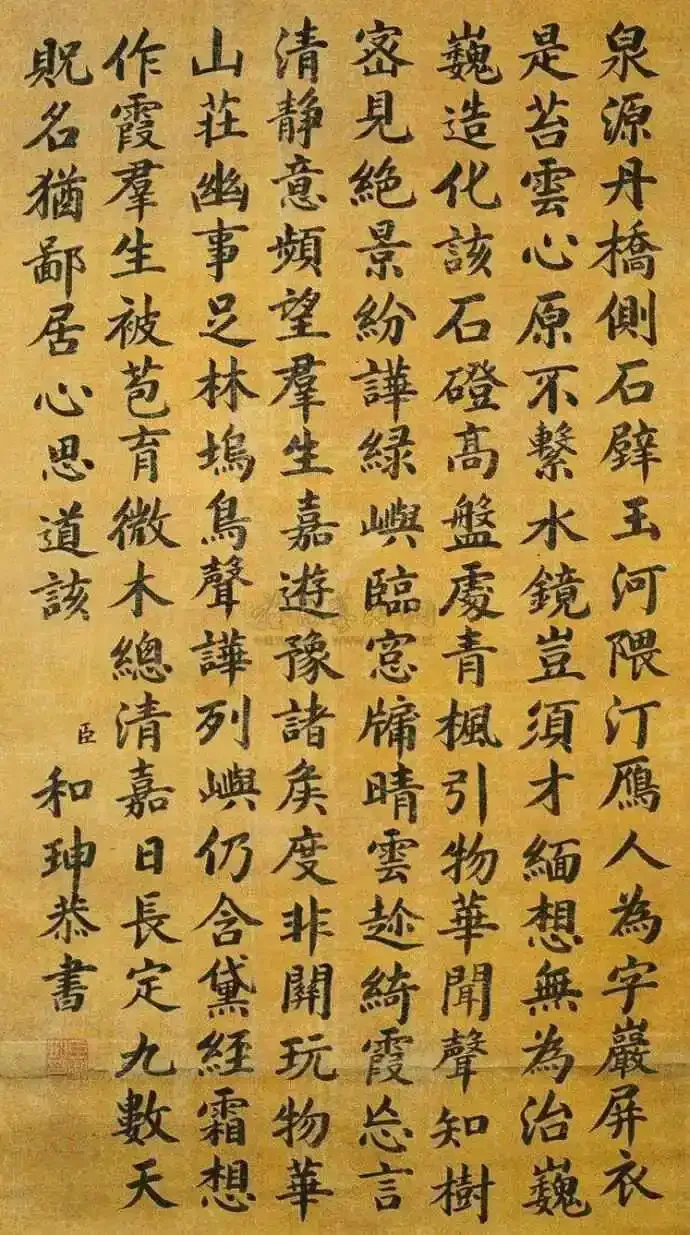 泉源丹橋側石壁玉河隈汀鴈人為字巖屏衣
是苔雲心原不繫水鏡豈須才緬想無為治巍
巍造化該石磴高盤處青楓引物華聞聲知樹
密見絕景紛譁綠嶼臨窓牖晴雲趂綺霞忘言
清靜意頻望羣生嘉遊豫諸矦度非關玩物華
山莊幽事足林塢鳥聲譁列嶼仍含黛經霜想
作霞羣生被苞育微木總清嘉日長定九數天
貺名猶鄙居心思道該
臣
和珅恭書